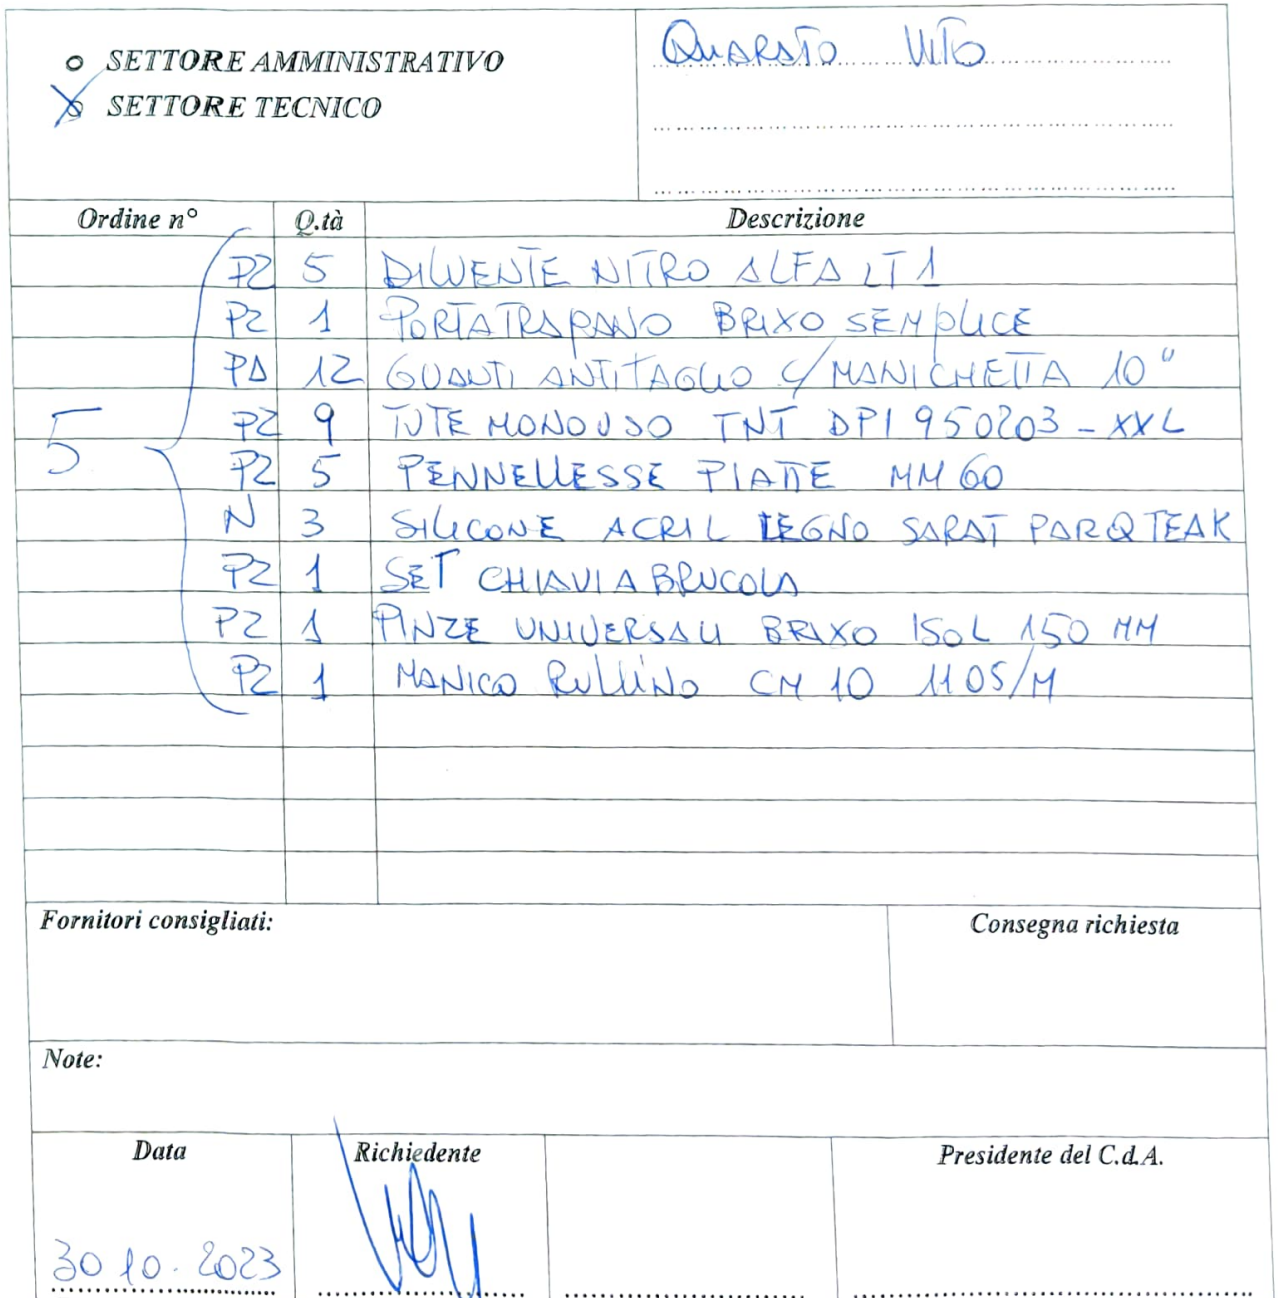 o SETTORE AMMINISTRATIVO
o SETTORE TECNICO
QUARATO VITO
Ordine n° Q.tà Descrizione
PZ 5 DILUENTE NITRO ALFA LT 1
PZ 1 PORTATRAPANO BRIXO SEMPLICE
PA 12 GUANTI ANTITAGLIO C/MANICHETTA 10"
5
PZ 9 TUTE MONOUSO TNT DPI 950203-XXL
PZ 5 PENNELLESSE PIATTE MM 60
N 3 SILICONE ACRIL LEGNO SARAT PARQ TEAK
PZ 1 SET CHIAVI A BRUCOLA
PZ 1 PINZE UNIVERSALI BRIXO ISOL 150 MM
PZ 1 MANICO RULLINO CM 10 1105/M
Fornitori consigliati: Consegna richiesta
Note:
Data Richiedente Presidente del C.d.A.
30 10. 2023